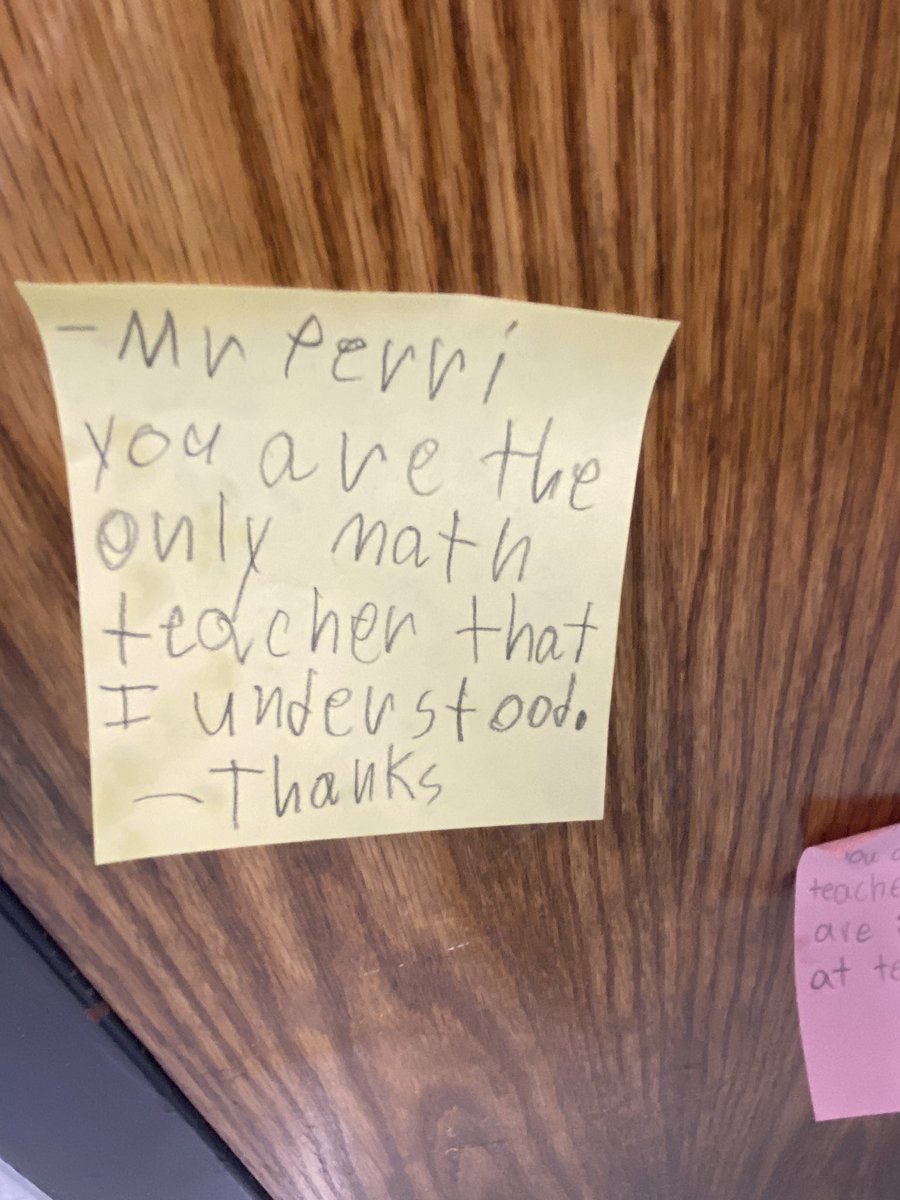 - Mr Perri
you are the
only math
teacher that
I understood.
- Thanks
are
at